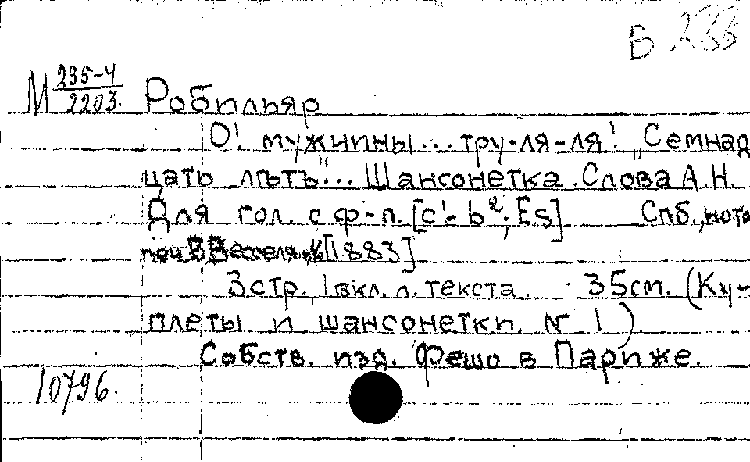 Б 233
М 235-4/2203. Робильяр
О! мужчины... тру-ля-ля! „Семнад
цать лѣтъ"... Шансонетка. Слова А.Н.
Для гол. с ф-п. [c¹- b²; Es] Спб., ното
печ. В. [1883]
3 стр. 1 вкл. л. текста. 35 см. (Ку-
плеты и шансонетки. № 1)
Собств. изд. Фешо в Париже.
10796.